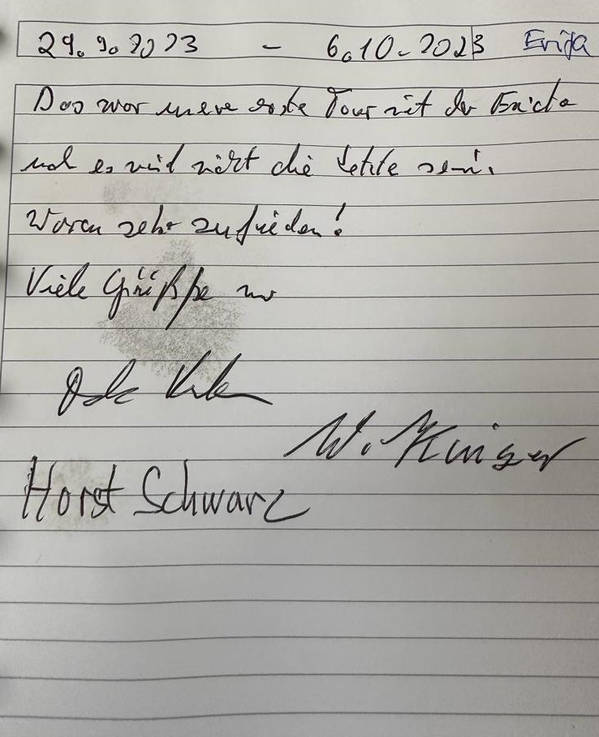 29.9.2023 - 6.10.2023 Erida
Das war unsere erste Tour mit der
und es wird nicht die letzte sein.
Waren sehr zufrieden!
Viele Grüße
W.
Horst Schwarz